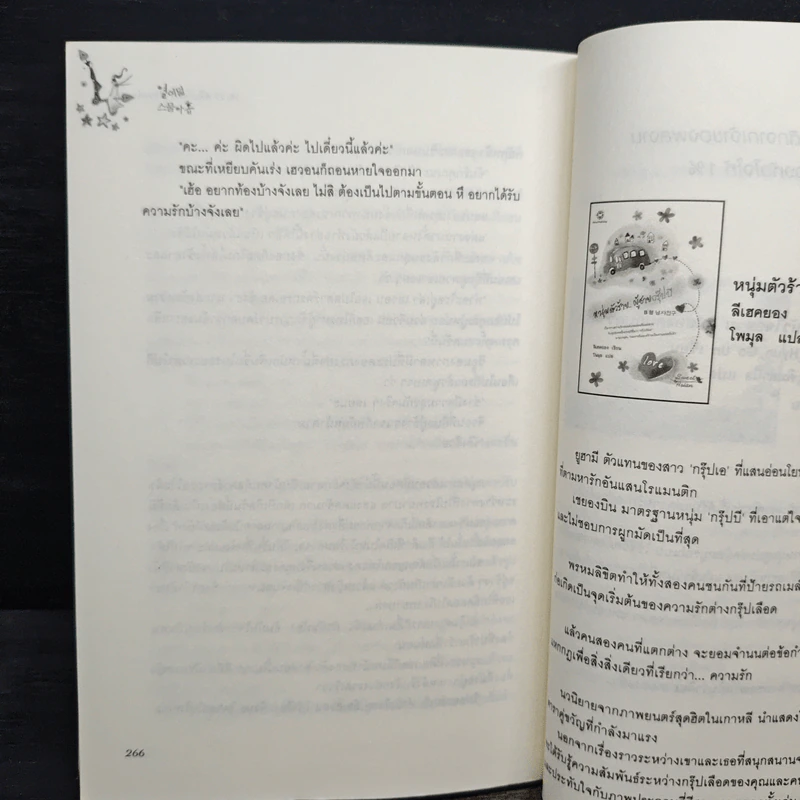 열여덟
스물아홉
"คะ... ค่ะ ผิดไปแล้วค่ะ ไปเดี๋ยวนี้แล้วค่ะ"
ขณะที่เหยียบคันเร่ง เฮวอนก็ถอนหายใจออกมา
"เฮ้อ อยากท้องบ้างจังเลย ไม่สิ ต้องเป็นไปตามขั้นตอน หึ อยากได้รับ
ความรักบ้างจังเลย"
266
love
หนุ่มตัวร้า
ลีเฮคยอง
โพมุล แปล
ยูฮามี ตัวแทนของสาว 'กรุ๊ปเอ' ที่แสนอ่อนโยน
ที่ตามหารักอันแสนโรแมนติก
เชยองบิน มาตรฐานหนุ่ม 'กรุ๊ปบี' ที่เอาแต่ใจ
และไม่ชอบการผูกมัดเป็นที่สุด
พรหมลิขิตทำให้ทั้งสองคนชนกันที่ป้ายรถเมล์
ก่อเกิดเป็นจุดเริ่มต้นของความรักต่างกรุ๊ปเลือด
แล้วคนสองคนที่แตกต่าง จะยอมจำนนต่อข้อกำ
แหกกฎเพื่อสิ่งสิ่งเดียวที่เรียกว่า... ความรัก
นวนิยายจากภาพยนตร์สุดฮิตในเกาหลี นำแสดงโ
ดาราคู่ขวัญที่กำลังมาแรง
นอกจากเรื่องราวระหว่างเขาและเธอที่สนุกสนาน
จะได้รับรู้ความสัมพันธ์ระหว่างกรุ๊ปเลือดของคุณและคน